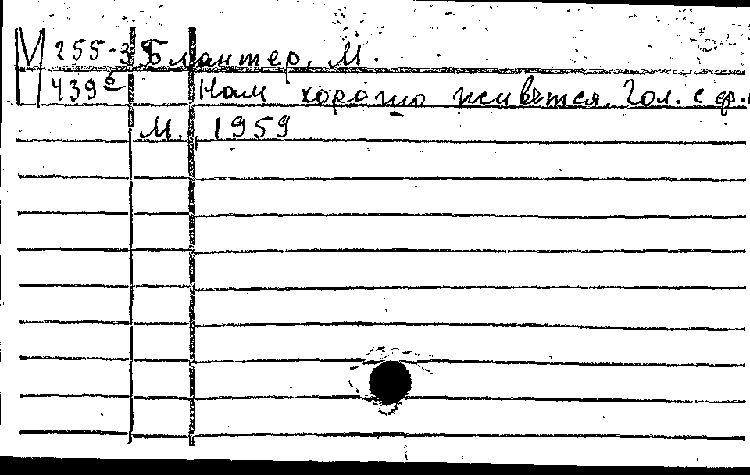 М 255-3 Блантер, М.
439 б Нам хорошо живется. Гол. с фп.
М. 1959